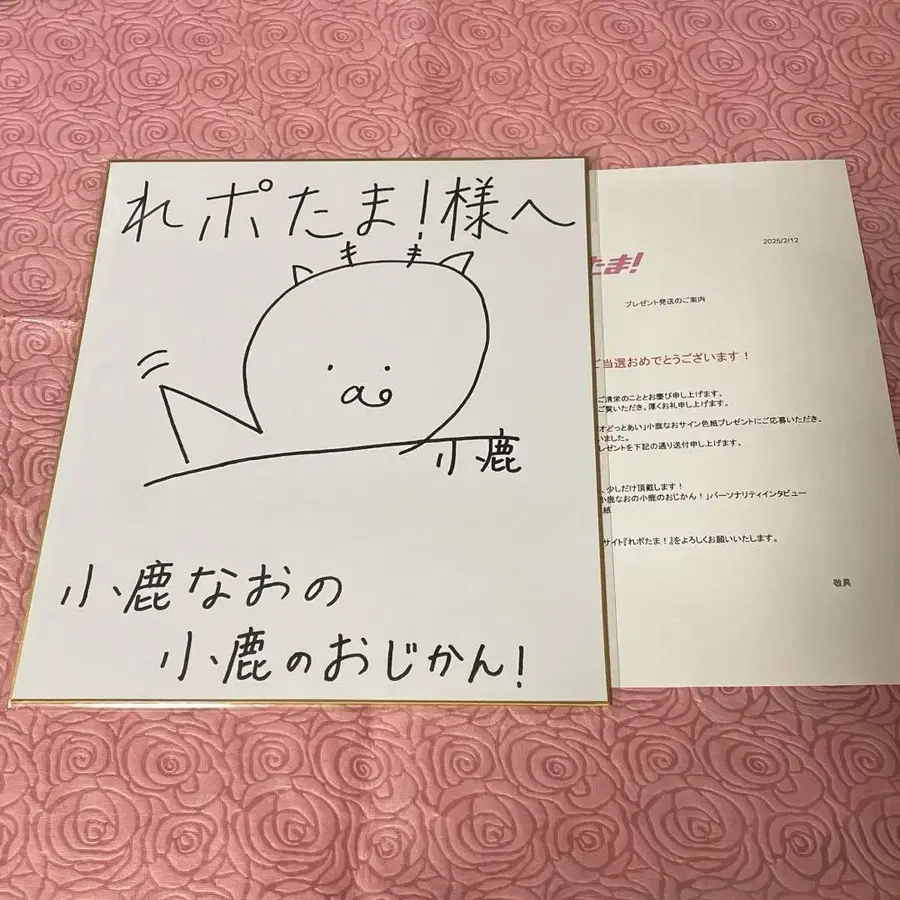 れポたま!様へ
小鹿
小鹿なおの
小鹿のおじかん!
2025/2/12
たま!
プレゼント発送のご案内
ご当選おめでとうございます!
ご清栄のこととお慶び申し上げます。
ご覧いただき、厚くお礼申し上げます。
オどっとあい」小鹿なおサイン色紙プレゼントにご応募いただき、
いました。
レゼントを下記の通り送付申し上げます。
、少しだけ頂戴します!
小鹿なおの小鹿のおじかん!」パーソナリティインタビュー
紙
サイト『れポたま!』をよろしくお願いいたします。
敬具